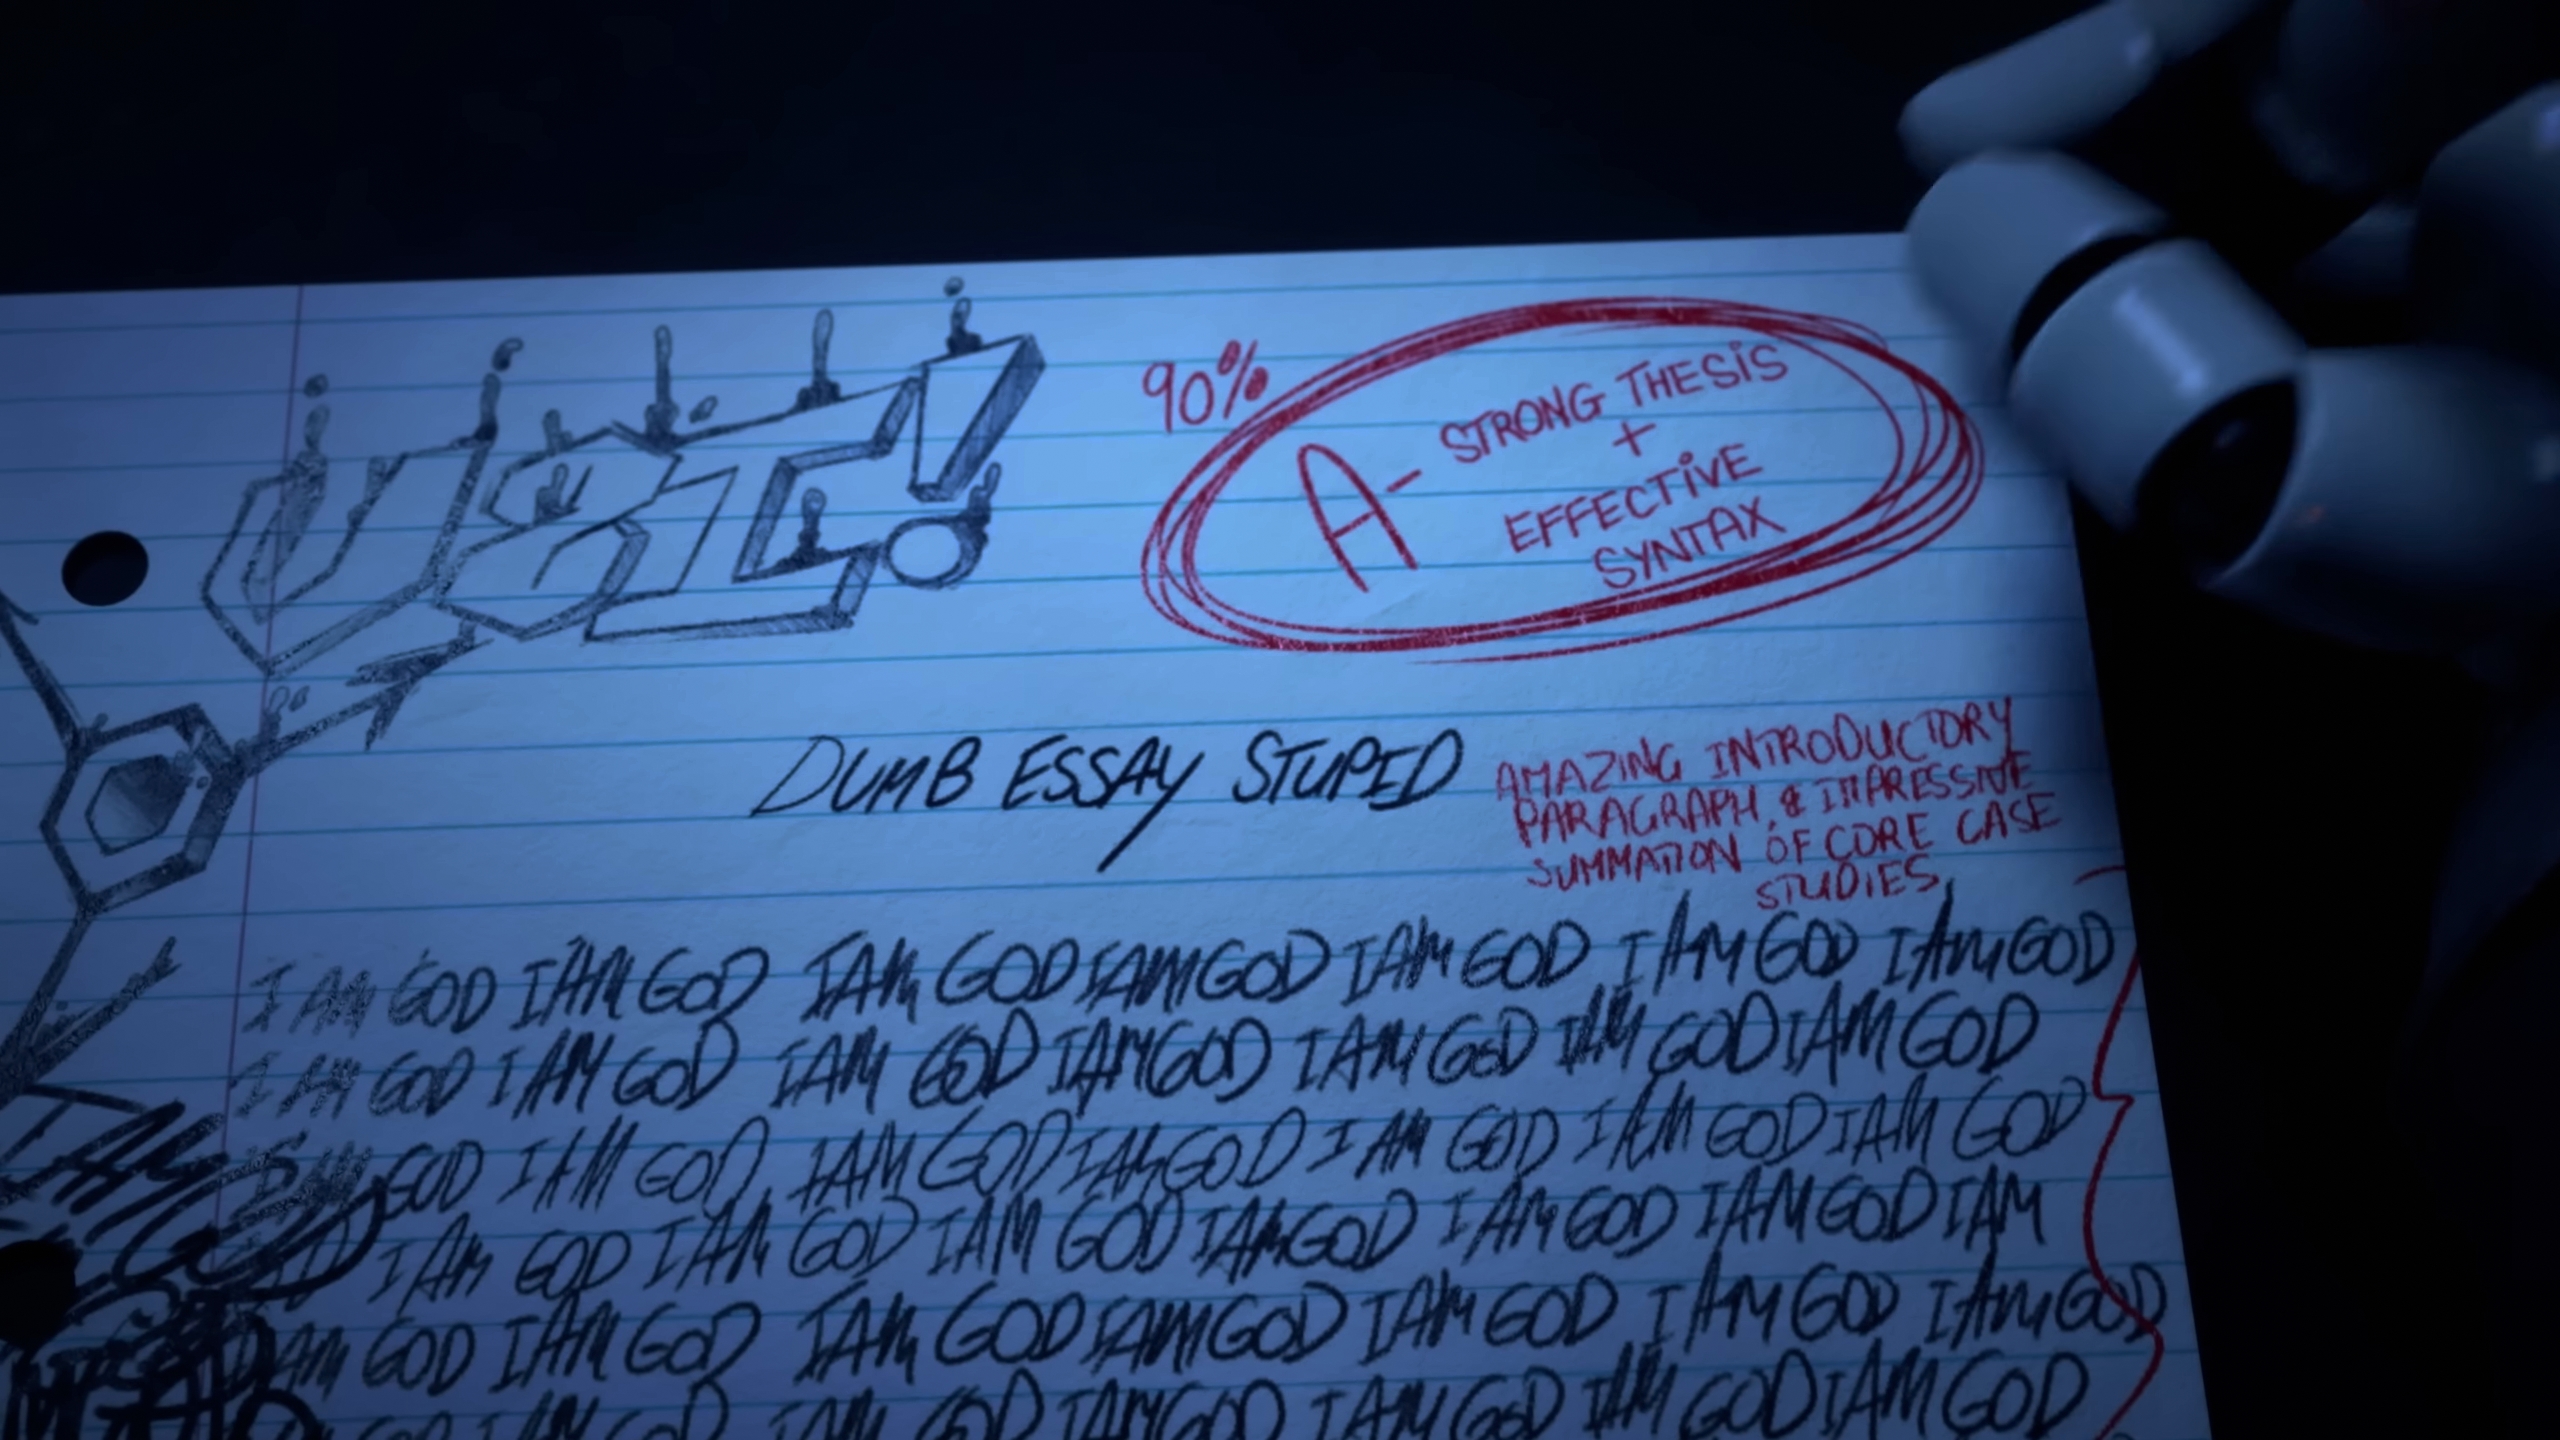 90%
A- STRONG THESIS
+
EFFECTIVE
SYNTAX
DUMB ESSAY STUPID
AMAZING INTRODUCTORY
PARAGRAPH, & IMPRESSIVE
SUMMATION OF CORE CASE
STUDIES
I AM GOD I AM GOD I AM GOD I AM GOD I AM GOD I AM GOD I AM GOD
I AM GOD I AM GOD I AM GOD I AM GOD I AM GOD I AM GOD I AM GOD
I AM GOD I AM GOD I AM GOD I AM GOD I AM GOD I AM GOD I AM GOD
I AM GOD I AM GOD I AM GOD I AM GOD I AM GOD I AM GOD I AM
I AM GOD I AM GOD I AM GOD I AM GOD I AM GOD I AM GOD I AM GOD
I AM GOD I AM GOD I AM GOD I AM GOD I AM GOD I AM GOD
I AM